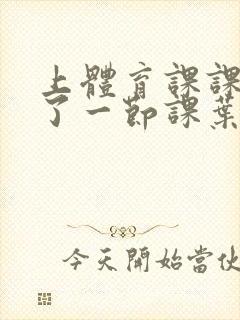 上體育課課
了一節課葉
今天開始當伙